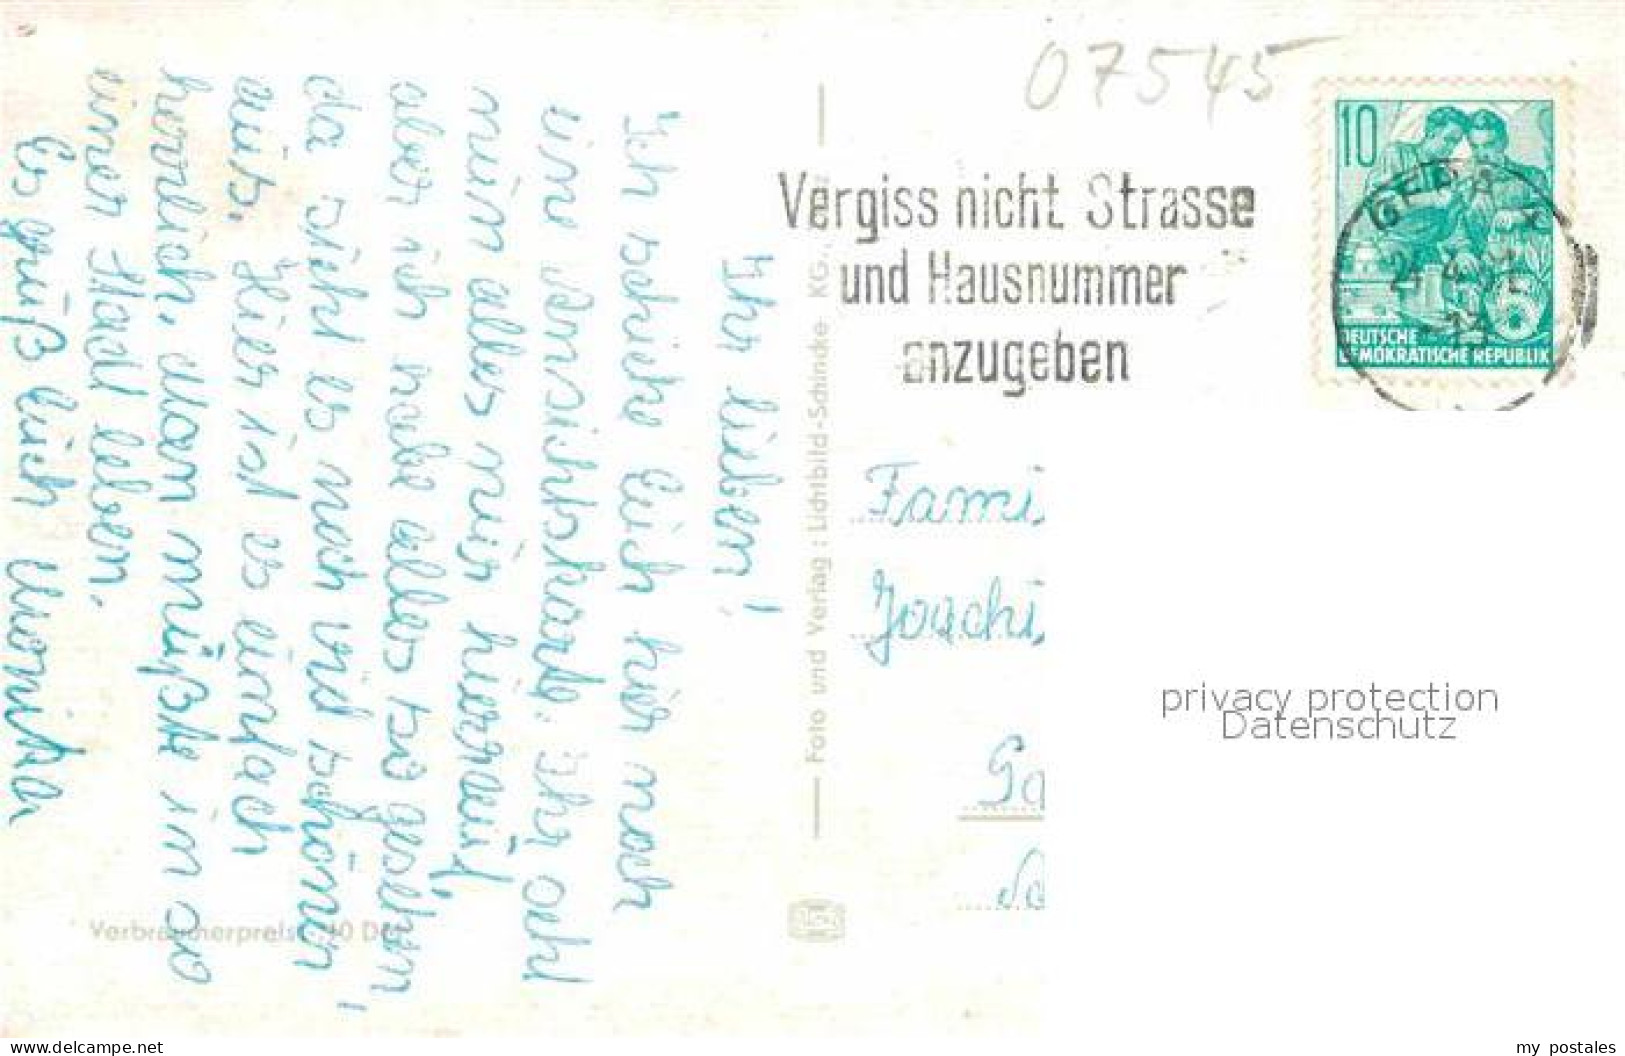 07545
10
Vergiss nicht Strasse
und Hausnummer
anzugeben
GERA
DEUTSCHE
DEMOKRATISCHE REPUBLIK
Ihr lieben!
Ich schicke Euch hier noch
eine Ansichtskarte. Ihr seht
nun alles nur hierauf,
aber ich habe alles so gesehn,
da sieht es noch viel schöner
aus. Hier ist es einfach
herrlich. Man müßte in so
einer Stadt leben.
Es grüßt Euch Monika
Foto und Verlag: Lichtbild-Schincke KG.
Verbraucherpreis 10 DM
Fami
Joachi
privacy protection
Datenschutz
www.delcampe.net
my_postales